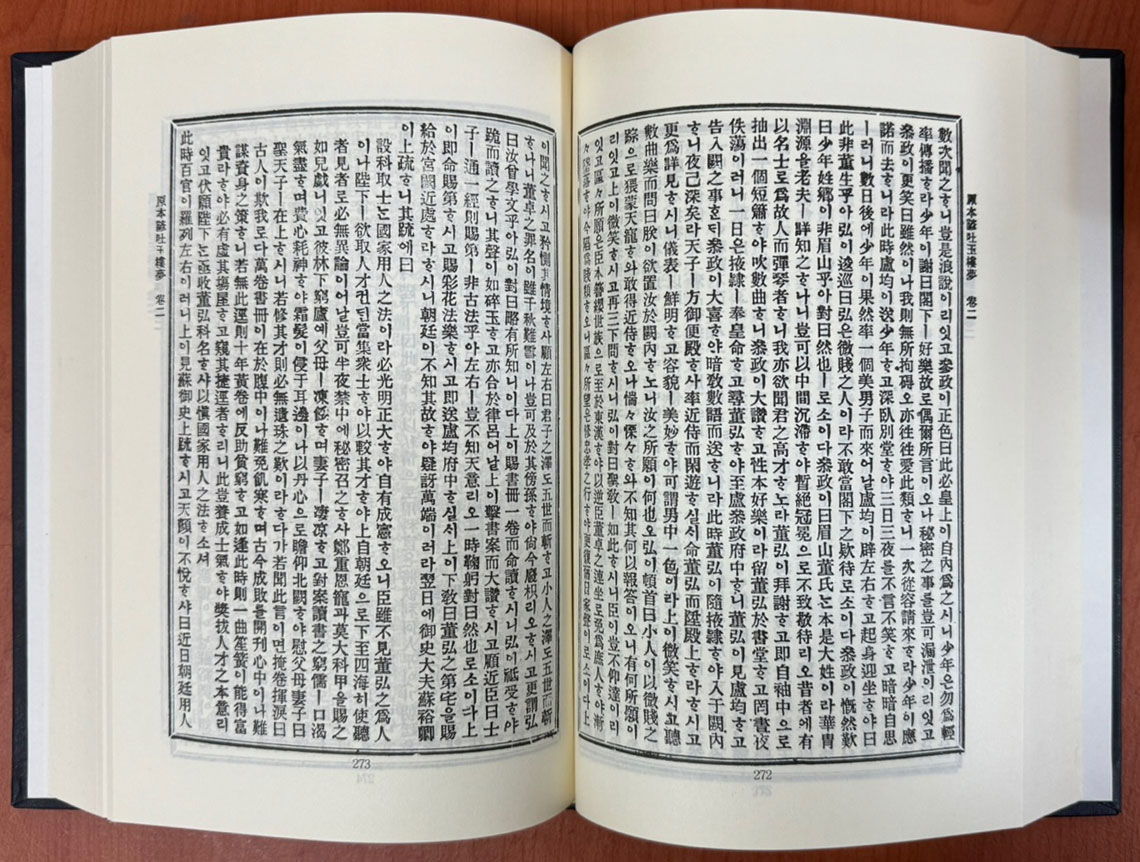 原本諺吐玉樓夢 卷二
數次聞之ᄒᆞ니豈是浪說이리잇고叅政이正色曰此必皇上이自內爲之시니少年은勿爲輕
率傳播ᄒᆞ라少年이謝曰閤下ㅣ好樂故로偶爾所言이오나秘密之事를豈可漏泄이리잇고
叅政이更笑曰雖然이나我則無所拘碍오亦往往愛此類ᄒᆞ니一次從容請來ᄒᆞ라少年이應
諾而去ᄒᆞ니라此時盧均이送少年ᄒᆞ고深臥別堂ᄒᆞ야三日三夜를不言不笑ᄒᆞ고暗自思
ㅣ러니數日後에少年이果然率一個美男子而來어날盧均이辟左右ᄒᆞ고起身迎坐ᄒᆞ야曰
此非董生乎아弘이逡巡曰弘은微賤之人이라不敢當閤下之欵待로소이다叅政이慨然歎
曰少年姓鄕이非眉山乎아對曰然也ㅣ로소이다叅政이曰眉山董氏ᄂᆞᆫ本是大姓이라華胄
淵源을老夫ㅣ詳知之ᄒᆞᄂᆞ니豈可以中間沉滯ᄒᆞ야暫絕冠冕으로不致敬待리오昔者에有
以名士로爲故人而彈琴者ᄒᆞ니我亦欲聞君之高才ᄒᆞ노라董弘이拜謝ᄒᆞ고即自袖中으로
抽出一個短簫ᄒᆞ야吹數曲ᄒᆞ니叅政이大讚ᄒᆞ고性本好樂이라留董弘於書堂ᄒᆞ고罔晝夜
佚蕩이러니一日은掖隷ㅣ奉皇命ᄒᆞ고尋董弘ᄒᆞ야至盧叅政府中ᄒᆞ니董弘이見盧均ᄒᆞ고
告入闕之事ᄒᆞᆫᄃᆡ叅政이大喜ᄒᆞ야暗敎數語而送ᄒᆞ니라此時董弘이隨掖隷ᄒᆞ야入于闕內
ᄒᆞ니夜已深矣라天子ㅣ方御便殿ᄒᆞ사率近侍而閑遊ᄒᆞ실ᄉᆡ命董弘而陞殿ᄒᆞ라ᄒᆞ시고
更爲詳見ᄒᆞ시니儀表ㅣ鮮明ᄒᆞ고容貌ㅣ美妙ᄒᆞ야可謂男中一色이라上이微笑ᄒᆞ시고聽
數曲樂而問曰朕이欲置汝於闕內ᄒᆞ노니汝之所願이何也오弘이頓首曰小人이以微賤之
踪으로猥蒙天寵ᄒᆞ와敢得近侍ᄒᆞ오나惱々慄々ᄒᆞ와不知其何以報答이오니有何所願이
리잇고上이微笑ᄒᆞ시고再三下問ᄒᆞ시니弘이對曰聖敎ㅣ如此ᄒᆞ시니臣이豈不仰達이리
잇고區々所願은臣本簪纓世族으로至於東漢ᄒᆞ야以逆臣董卓之連坐로免爲庶人ᄒᆞ야漸
々墜落ᄒᆞ야今陷爲賤類ᄒᆞ오니區々所望은修忠孝之行ᄒᆞ야更復舊日家聲이로소이다上
272
이聞之ᄒᆞ시고矜惻其情境ᄒᆞ사顧左右曰君子之澤도五世而斬ᄒᆞ고小人之澤도五世而斬
ᄒᆞ나니董卓之罪名이雖千秋難雪이나豈可及於其傍孫ᄒᆞ야尙今廢枳리오ᄒᆞ시고更謂弘
曰汝曾學文乎아弘이對曰略有所知니이다上이賜書冊一卷而命讀ᄒᆞ시니弘이祗受ᄒᆞ야
跪而讀之ᄒᆞ니其聲이如碎玉ᄒᆞ고亦合於律呂어날上이擊書案而大讚ᄒᆞ시고顧近臣曰士
子ㅣ通一經則賜第ㅣ非古法乎아左右ㅣ豈不知天意리오一時鞠躬對曰然也로소이다上
이即命賜第ᄒᆞ시고賜彩花法樂ᄒᆞ시고即送盧均府中ᄒᆞ실시上이下敎曰董弘之第宅을賜
給於宮闕近處ᄒᆞ라ᄒᆞ시니朝廷이不知其故ᄒᆞ야疑訝萬端이러라翌日에御史大夫蘇裕卿
이上疏ᄒᆞ니其疏에曰
設科取士ᄂᆞᆫ國家用人之法이라必光明正大ᄒᆞ야自有成憲ᄒᆞ오니臣雖不見董弘之爲人
이나陛下ㅣ欲取人才ᄒᆞ진ᄃᆡᆫ當集衆士ᄒᆞ야以較其才ᄒᆞ야上自朝廷으로下至四海히使聽
者見者로必無異論이어날豈可半夜禁中에秘密召之ᄒᆞ사鄭重恩寵과莫大科甲을賜之
如兒戲ㅣ니잇고彼林下窮廬에父母ㅣ凍餒ᄒᆞ며妻子ㅣ凄凉ᄒᆞ고對案讀書之窮儒ㅣ口渴
氣盡ᄒᆞ며費心耗神ᄒᆞ야霜髮이侵于耳邊이나以丹心으로瞻仰北闕ᄒᆞ야慰父母妻子曰
聖天子ㅣ在上ᄒᆞ시니若修其才則必無遺珠之歎이라ᄒᆞ다가若聞此言이면掩卷揮淚曰
古人이欺我로다萬卷書冊이在於腹中이나難免飢寒ᄒᆞ며古今成敗를開刋心中이나難
謀資身之策ᄒᆞ니若無此逕則十年黃卷에反助貧窮ᄒᆞ고如逢此時則一曲笙簧이能得富
貴라ᄒᆞ야必有虛其塲屋ᄒᆞ고窺其捷逕者ᄒᆞ리니此豈養成士氣ᄒᆞ야奬拔人才之本意리
잇고伏願陛下ᄂᆞᆫ亟收董弘科名ᄒᆞ샤以愼國家用人之法ᄒᆞ소셔
此時百官이羅列左右이러니上이見蘇御史上疏ᄒᆞ시고天顔이不悅ᄒᆞ샤曰近日朝廷用人
原本諺吐玉樓夢 卷二
273